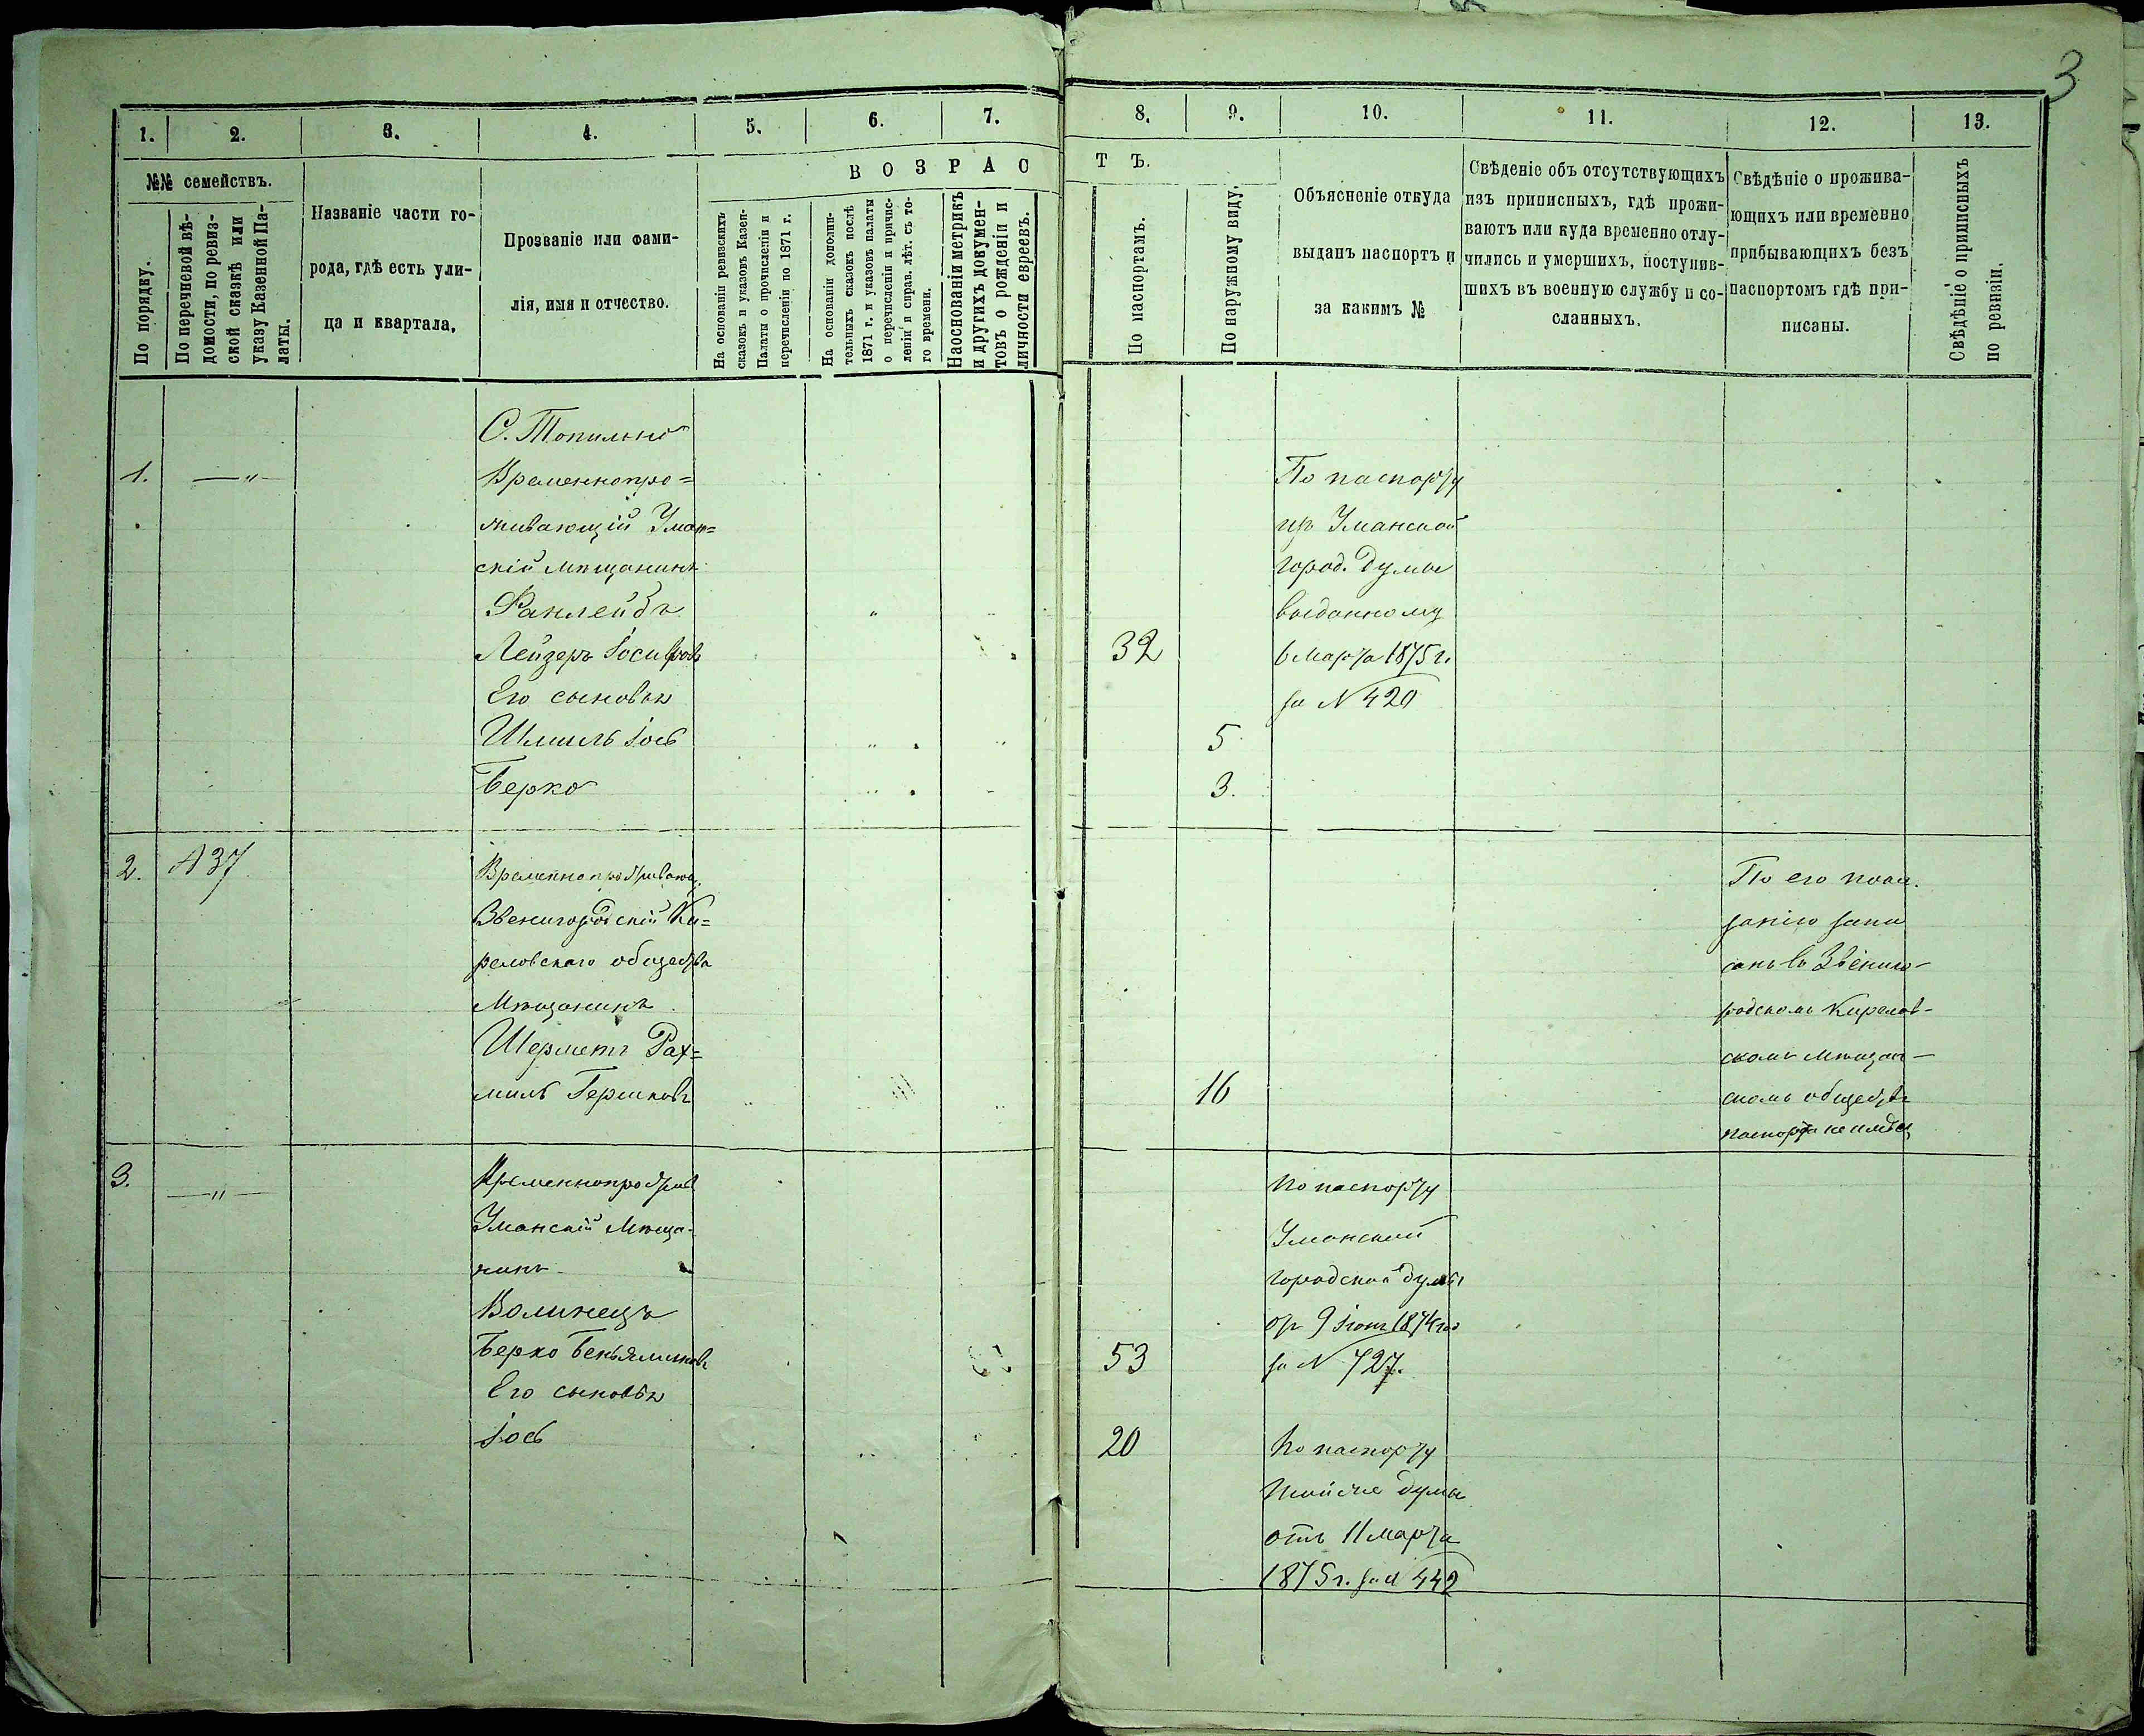 3
1. 2. 3. 4. 5. 6. 7. 8. 9. 10. 11. 12. 13.
№№ семействъ.
По порядку.
По перечневой вѣ-
домости, по ревиз-
ской сказкѣ или
указу Казенной Па-
латы.
Названіе части го-
рода, гдѣ есть ули-
ца и квартала.
Прозваніе или фами-
лія, имя и отчество.
ВОЗРАСТЪ.
На основаніи ревизскихъ
сказокъ и указовъ Казен-
Палаты о прочисленіи и
перечисленіи по 1871 г.
На основаніи дополни-
тельныхъ сказокъ послѣ
1871 г. и указовъ палаты
о перечисленіи и причис-
леніи и справ. лѣт. съ то-
го времени.
На основаніи метрикъ
и другихъ докумен-
товъ о рожденіи и
личности евреевъ.
По паспортамъ.
По наружному виду.
Объясненіе откуда
выданъ паспортъ и
за какимъ №
Свѣденіе объ отсутствующихъ
изъ приписныхъ, гдѣ прожи-
ваютъ или куда временно отлу-
чились и умершихъ, поступив-
шихъ въ военную службу и со-
сланныхъ.
Свѣдѣніе о прожива-
ющихъ или временно
прибывающихъ безъ
паспортомъ гдѣ при-
писаны.
Свѣдѣніе о приписныхъ
по ревизіи.
С. Топильно
1. — " —
Временнопро=
живающій Уман=
скій мѣщанинъ
Ранлейбъ
Лейзеръ Іосифовъ
Его сыновья
Шмиль Іось
Берко
32
5
3.
По паспорту
изъ Уманской
город. Думы
выданному
6 Марта 1875 г.
за N 420
2. N 37
Временнопрожваю.
Звенигородскій Ки=
реловскаго общества
Мѣщанинъ
Шерметъ Рах=
миль Гершковъ
16
По его пока.
занію запи
санъ въ Звениго-
родскомъ Кирелов-
скомъ Мѣщан-
скомъ обществѣ
паспорта не имѣетъ
3. — " —
Временнопрожив
Уманскій Мѣща-
нинъ
Волинецъ
Берко Беньяминовъ
Его сыновья
Іось
53
20
По паспорту
Уманской
городской думы
отъ 9 Іюня 1874 год
за N 727.
По паспорту
тойже думы
отъ 11 Марта
1875 г. за N 442